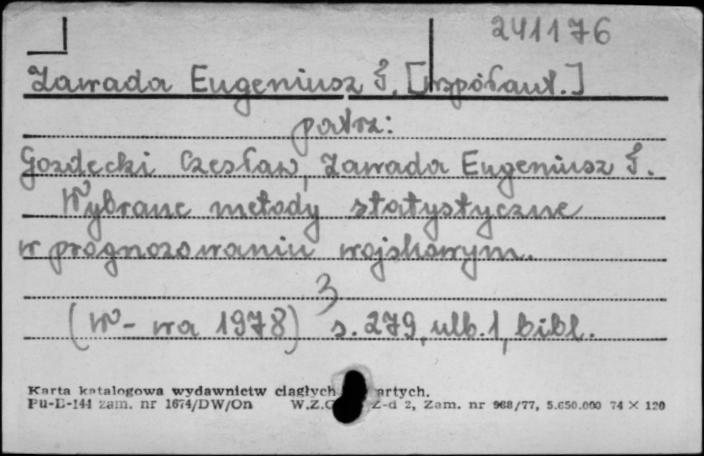 241176
Zawada Eugeniusz Ł. [współaut.]
patrz:
Gozdecki Czesław, Zawada Eugeniusz Ł.
Wybrane metody statystyczne
w prognozowaniu wojskowym.
3
(W-wa 1978) s. 279, ulb. 1, bibl.
Karta katalogowa wydawnictw ciągłych artych.
Pu-E-144 zam. nr 1674/DW/On W.Z.G Z-d 2, Zam. nr 968/77, 5.650.000 74 × 120